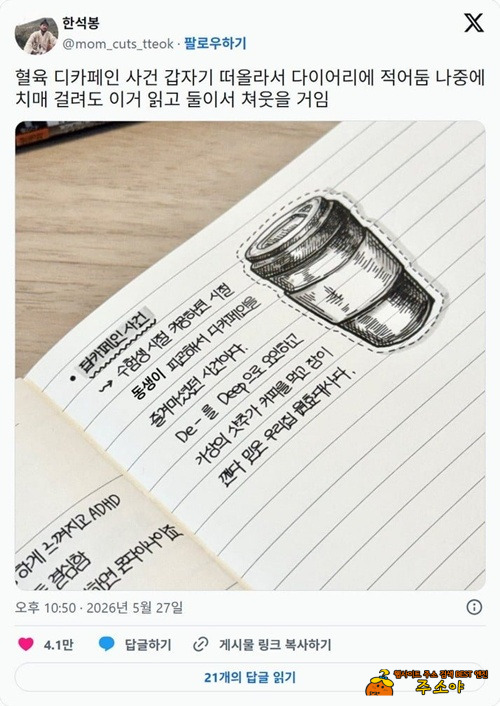 한석봉
@mom_cuts_tteok · 팔로우하기
혈육 디카페인 사건 갑자기 떠올라서 다이어리에 적어둠 나중에
치매 걸려도 이거 읽고 둘이서 쳐웃을 거임
• 딥카페인 사건
→ 수험생 시절 커공하던 시절
동생이 피곤해서 디카페인을
즐겨마셨던 사건이다.
De- 를 Deep으로 오인하고
가상의 샷추가 커피를 먹고 잠이
깬다 믿은 우리집 원효대사다.
하게 느껴지고 ADHD
결심함
하면 몬다이나이죠
오후 10:50 · 2026년 5월 27일
4.1만
답글하기
게시물 링크 복사하기
21개의 답글 읽기
웹사이트 주소 검색 BEST 엔진
주소야